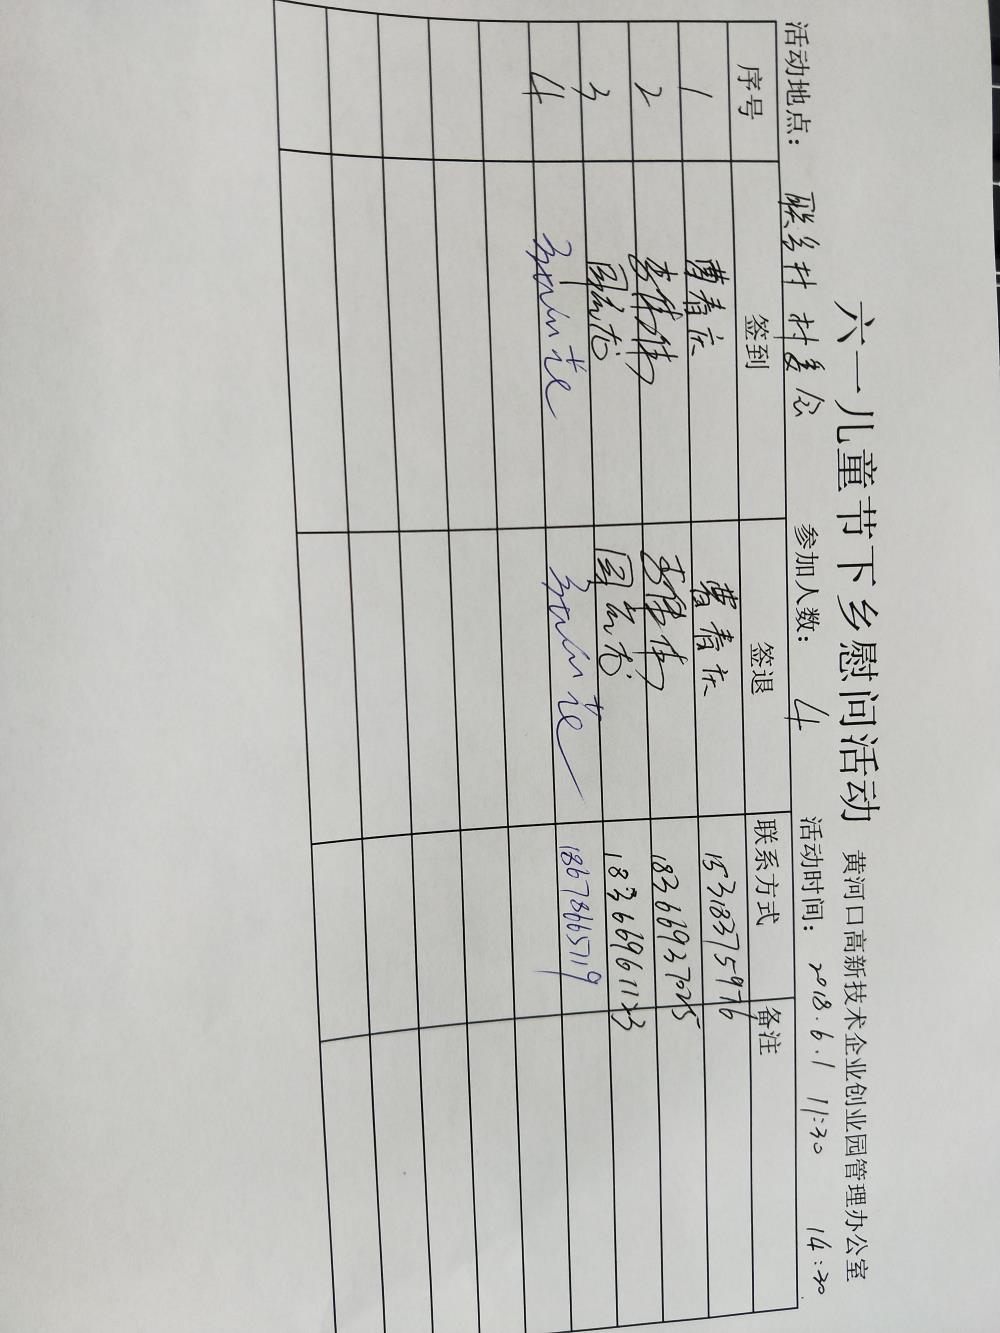 六一儿童节下乡慰问活动 黄河口高新技术企业创业园管理办公室
活动地点： 联乡村 村委会 参加人数： 4 活动时间： 2018.6.1 11:30 14:30
序号 签到 签退 联系方式 备注
1 曹春庆 曹春庆 15318375976
2 李伟伟 李伟伟 18366937025
3 18366961123
4 18678665719